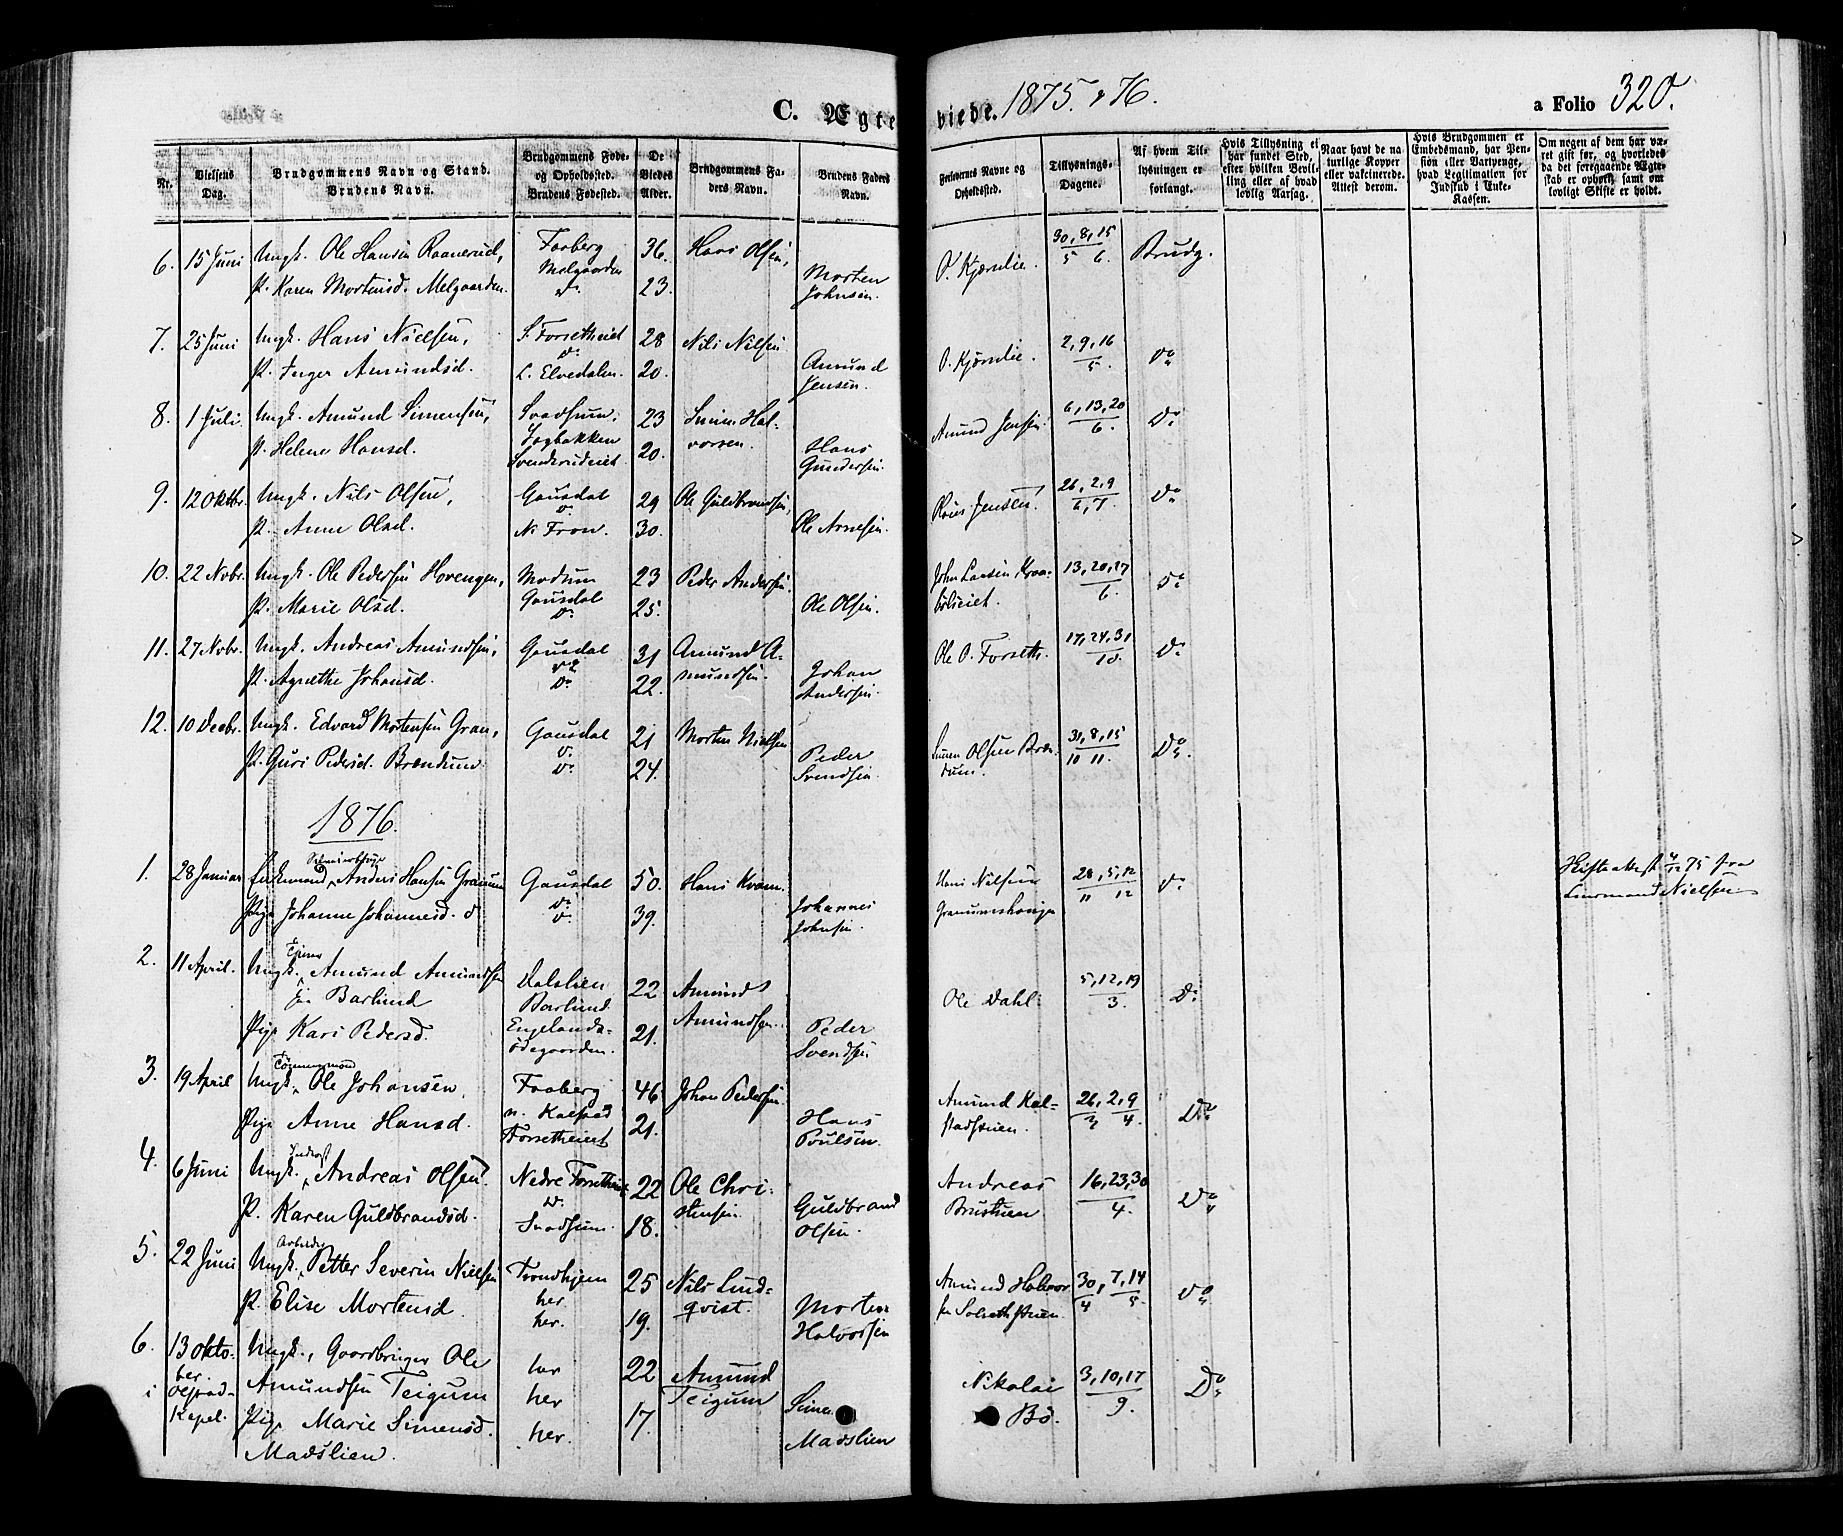 C. Ægteviede. 1875 & 76.
a Folio 320.
Nr.
Vielsens Dag.
Brudgommens Navn og Stand. Brudens Navn.
Brudgommens Føde- og Opholdssted. Brudens Fødested.
De Viedes Alder.
Brudgommens Faders Navn.
Brudens Faders Navn.
Forlovernes Navne og Opholdssted.
Tillysnings-Dagene.
Af hvem Tillysningen er forlangt.
Hvis Tillysning ei har fundet Sted, efter hvilken Bevilling eller af hvad lovlig Aarsag.
Naar havt de naturlige Kopper eller vaksinerede. Attest derom.
Hvis Brudgommen er Embedsmand, har Pension eller Vartpenge, hvad Legitimation for Indskud i Enke-Kassen.
Om nogen af dem har været gift før, og hvorledes da det foregaaende Ægteskab er ophørt samt om lovligt Skifte er holdt.
6. 15 Juni Ungk. Ole Hansen Raanerud, Faaberg 36. Hans Olsen, O. Kjørnlie. 30, 8, 15 Brudg.
Melgaarden 5 6.
P. Karen Mortensd. Melgaarden. Do 23. Morten
Johnsen.
7. 25 Juni Ungk. Hans Nielsen, S. Forsetheiet 28 Nils Nilsen O. Kjørnlie. 2, 9, 16 Do
Do 5.
P. Inger Amundsd. L. Elvedalen. 20. Amund
Jensen.
8. 1 Juli Ungk. Amund Simensen, Svadsum, 23 Simen Hal- Amund Jensen. 6, 13, 20 Do
vorsen. 6.
P. Helene Hansd. Svenderudeiet 20. Hans
Gundersen.
9. 12 Oktbr. Ungk. Nils Olsen, Gausdal 29 Ole Guldbrandsen, Jensen 26, 2, 9 Do
Do 6, 7.
P. Anne Olsd. N. Fron. 30. Ole Arnesen.
10. 22 Novbr. Ungk. Ole Pedersen Hovengen, Modum 23 Peder Andersen. John Larsen 13, 20, 27 Do
Gausdal 6.
P. Marie Olsd. Do 25. Ole Olsen.
11. 27 Novbr. Ungk. Andreas Amundsen, Gausdal 31 Amund A- Ole O. Forseth. 17, 24, 31 Do
Do mundsen. 10.
P. Agnethe Johansd. Do 22. Johan
Andersen.
12. 10 Decbr. Ungk. Edvard Mortensen Gran, Gausdal 21 Morten Nielsen Simen Olsen Bræn- 31, 8, 15 Do
Do dum. 10 11.
P. Guri Pedersd. Brændum. Do 24. Peder
Svendsen.
1876.
1. 28 Januar Enkemand, Anders Hansen Granum Gausdal 50. Hans Kvam. Hans Nilsen 28, 5, 12 Do
Do Granumshaugen 11 12
Pige Johanne Johannesd. Do Do 39. Johannes
Johnsen.
75 fra
Lensmand Nielsen
2. 11 April. Ungk. Amund Amundsen Dalslien 22 Amund Ole Dahl. 5, 12, 19 Do
Barlund Barlund Amundsen. 3.
Pige Kari Pedersd. Engelands- 21. Peder
ødegaarden. Svendsen
3. 19 April Ungk. Tømmermand Ole Johansen, Faaberg 46 Johan Pedersen Amund Kal- 26, 2, 9 Do
n. Kalstad stadstuen. 3 4.
Pige Anne Hansd. Forsetheiet 21. Hans
Poulsen.
4. 6 Juni Ungk. Inderst Andreas Olsen. Nedre Forsetheiet 22 Ole Chri- Andreas 16, 23, 30 Do
Do stensen. Brustuen 4.
P. Karen Guldbrandsd. Svadsum. 18. Guldbrand
Olsen.
5. 22 Juni Ungk. Arbeider Petter Severin Nielsen Trondhjem 25 Nils Lind- Amund Halvor- 30, 7, 14 Do
her. qvist. 4 5.
P. Elise Mortensd. her. 19. Morten
Halvorsen
6. 13 Okto- Ungk., Gaardbruger Ole her 22 Amund Nikolai 3, 10, 17 Do
ber. Amundsen Teigum her Teigum Bø. 9.
i Kapel. Pige Marie Simensd. her. 17. Simen
Madslien. Madslien